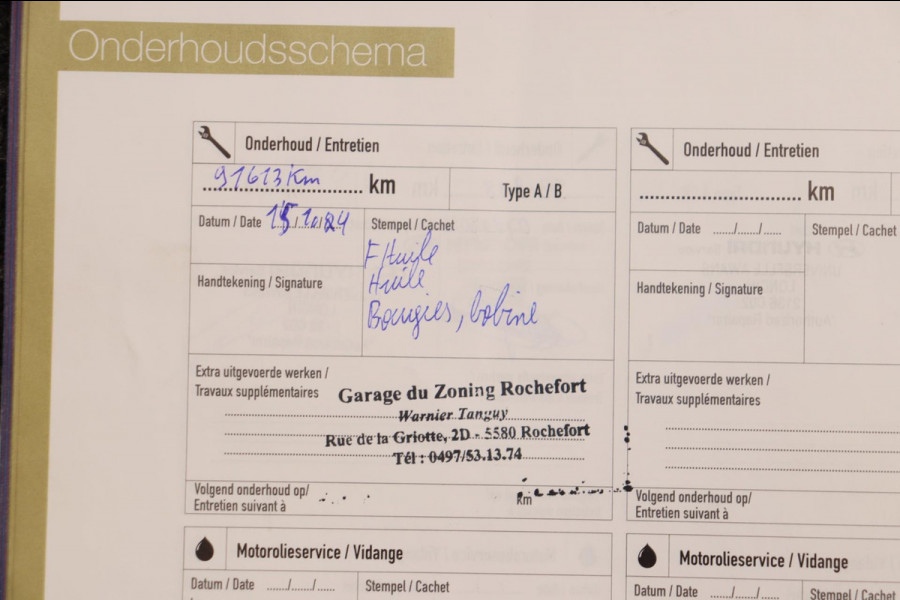 Onderhoudsschema
Onderhoud / Entretien
91613 Km km
Type A / B
Datum / Date 15/10/24
Stempel / Cachet
F/Huile
Huile
Bougies, bobine
Handtekening / Signature
Extra uitgevoerde werken /
Travaux supplémentaires
Garage du Zoning Rochefort
Warnier Tanguy
Rue de la Griotte, 2D - 5580 Rochefort
Tél : 0497/53.13.74
Volgend onderhoud op/
Entretien suivant à
Km
Motorolieservice / Vidange
Datum / Date ....../....../......
Stempel / Cachet
Onderhoud / Entretien
km
Datum / Date ....../....../......
Stempel / Cachet
Handtekening / Signature
Extra uitgevoerde werken /
Travaux supplémentaires
Volgend onderhoud op/
Entretien suivant à
Motorolieservice / Vidange
Datum / Date ....../....../......
Stempel / Cachet